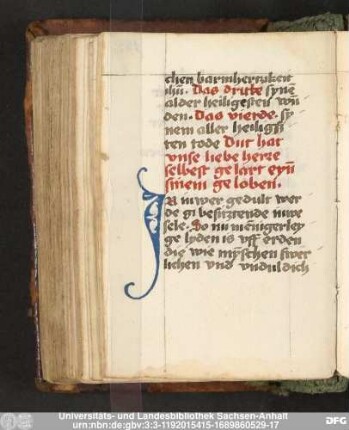 chen barmhertzikeit
ihū. Das dritte syne
alder heiligesten wū
den. Das vierde. sy
nem aller heiligis
ten tode Dit hat
vnse liebe herre
selbest ge lart eyū
ge loben.
IN uwer gedult wer
de gi besitzende uwe
sele. So nu menigerley
ge lyden is vff erden
die wie mynschen swer
lichen vnd vnduldich
Universitäts- und Landesbibliothek Sachsen-Anhalt
urn:nbn:de:gbv:3:3-1192015415-1689860529-17
DFG